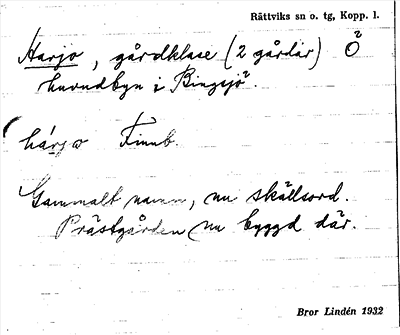 Rättviks sn o. tg, Kopp. l.
Harjo, gårdklase (2 gårdar) Ö
huvudbyn i Bingsjö.
hárjω Finnb.
Gammalt namn, nu skällsord.
Prästgården nu byggd där.
Bror Lindén 1932